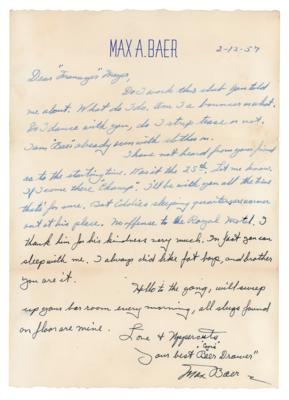 MAX A. BAER
2-12-57
Dear "Fromages" Mayo,
Do I work this shit you told
me about. What do I do. Am I a bouncer or what.
Do I dance with you, do I strip tease or not.
I am Essi already seen with clothes on.
I have not heard from your friend
as to the starting time. Was it the 25th. Let me know.
If I come there "Champ". I'll be with you all the time
thats for sure. But Eddie's sleeping quarters are warmer
out at his place. No offense to the Royal Motel. I
thank him for his kindness very much. In fact you can
sleep with me. I always did like fat boys, and brother
you are it.
Hello to the gang, will sweep
up your bar room every morning, all slugs found
on floor are mine.
Love & Uppercuts
Your best "Beer Drawer"
Max Baer